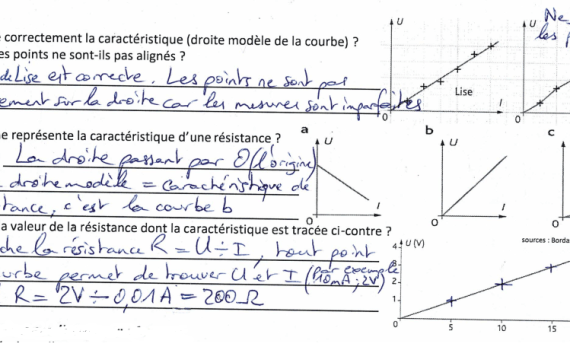 correctement la caractéristique (droite modèle de la courbe) ?
es points ne sont-ils pas alignés ?
de Lise est correcte. Les points ne sont pas
ement sur la droite car les mesures sont imparfaites
U
Lise
I
0
U
Ne
les
0
e représente la caractéristique d'une résistance ?
La droite passant par O (l'origine)
droite modèle = caractéristique de
tance, c'est la courbe b
a
U
I
0
b
U
I
0
c
0
a valeur de la résistance dont la caractéristique est tracée ci-contre ?
che la résistance R = U ÷ I, tout point
urbe permet de trouver U et I (par exemple
10mA ; 2V)
R = 2V ÷ 0,01A = 200Ω
sources : Borda
U (V)
4
3
2
1
0
5
10
15